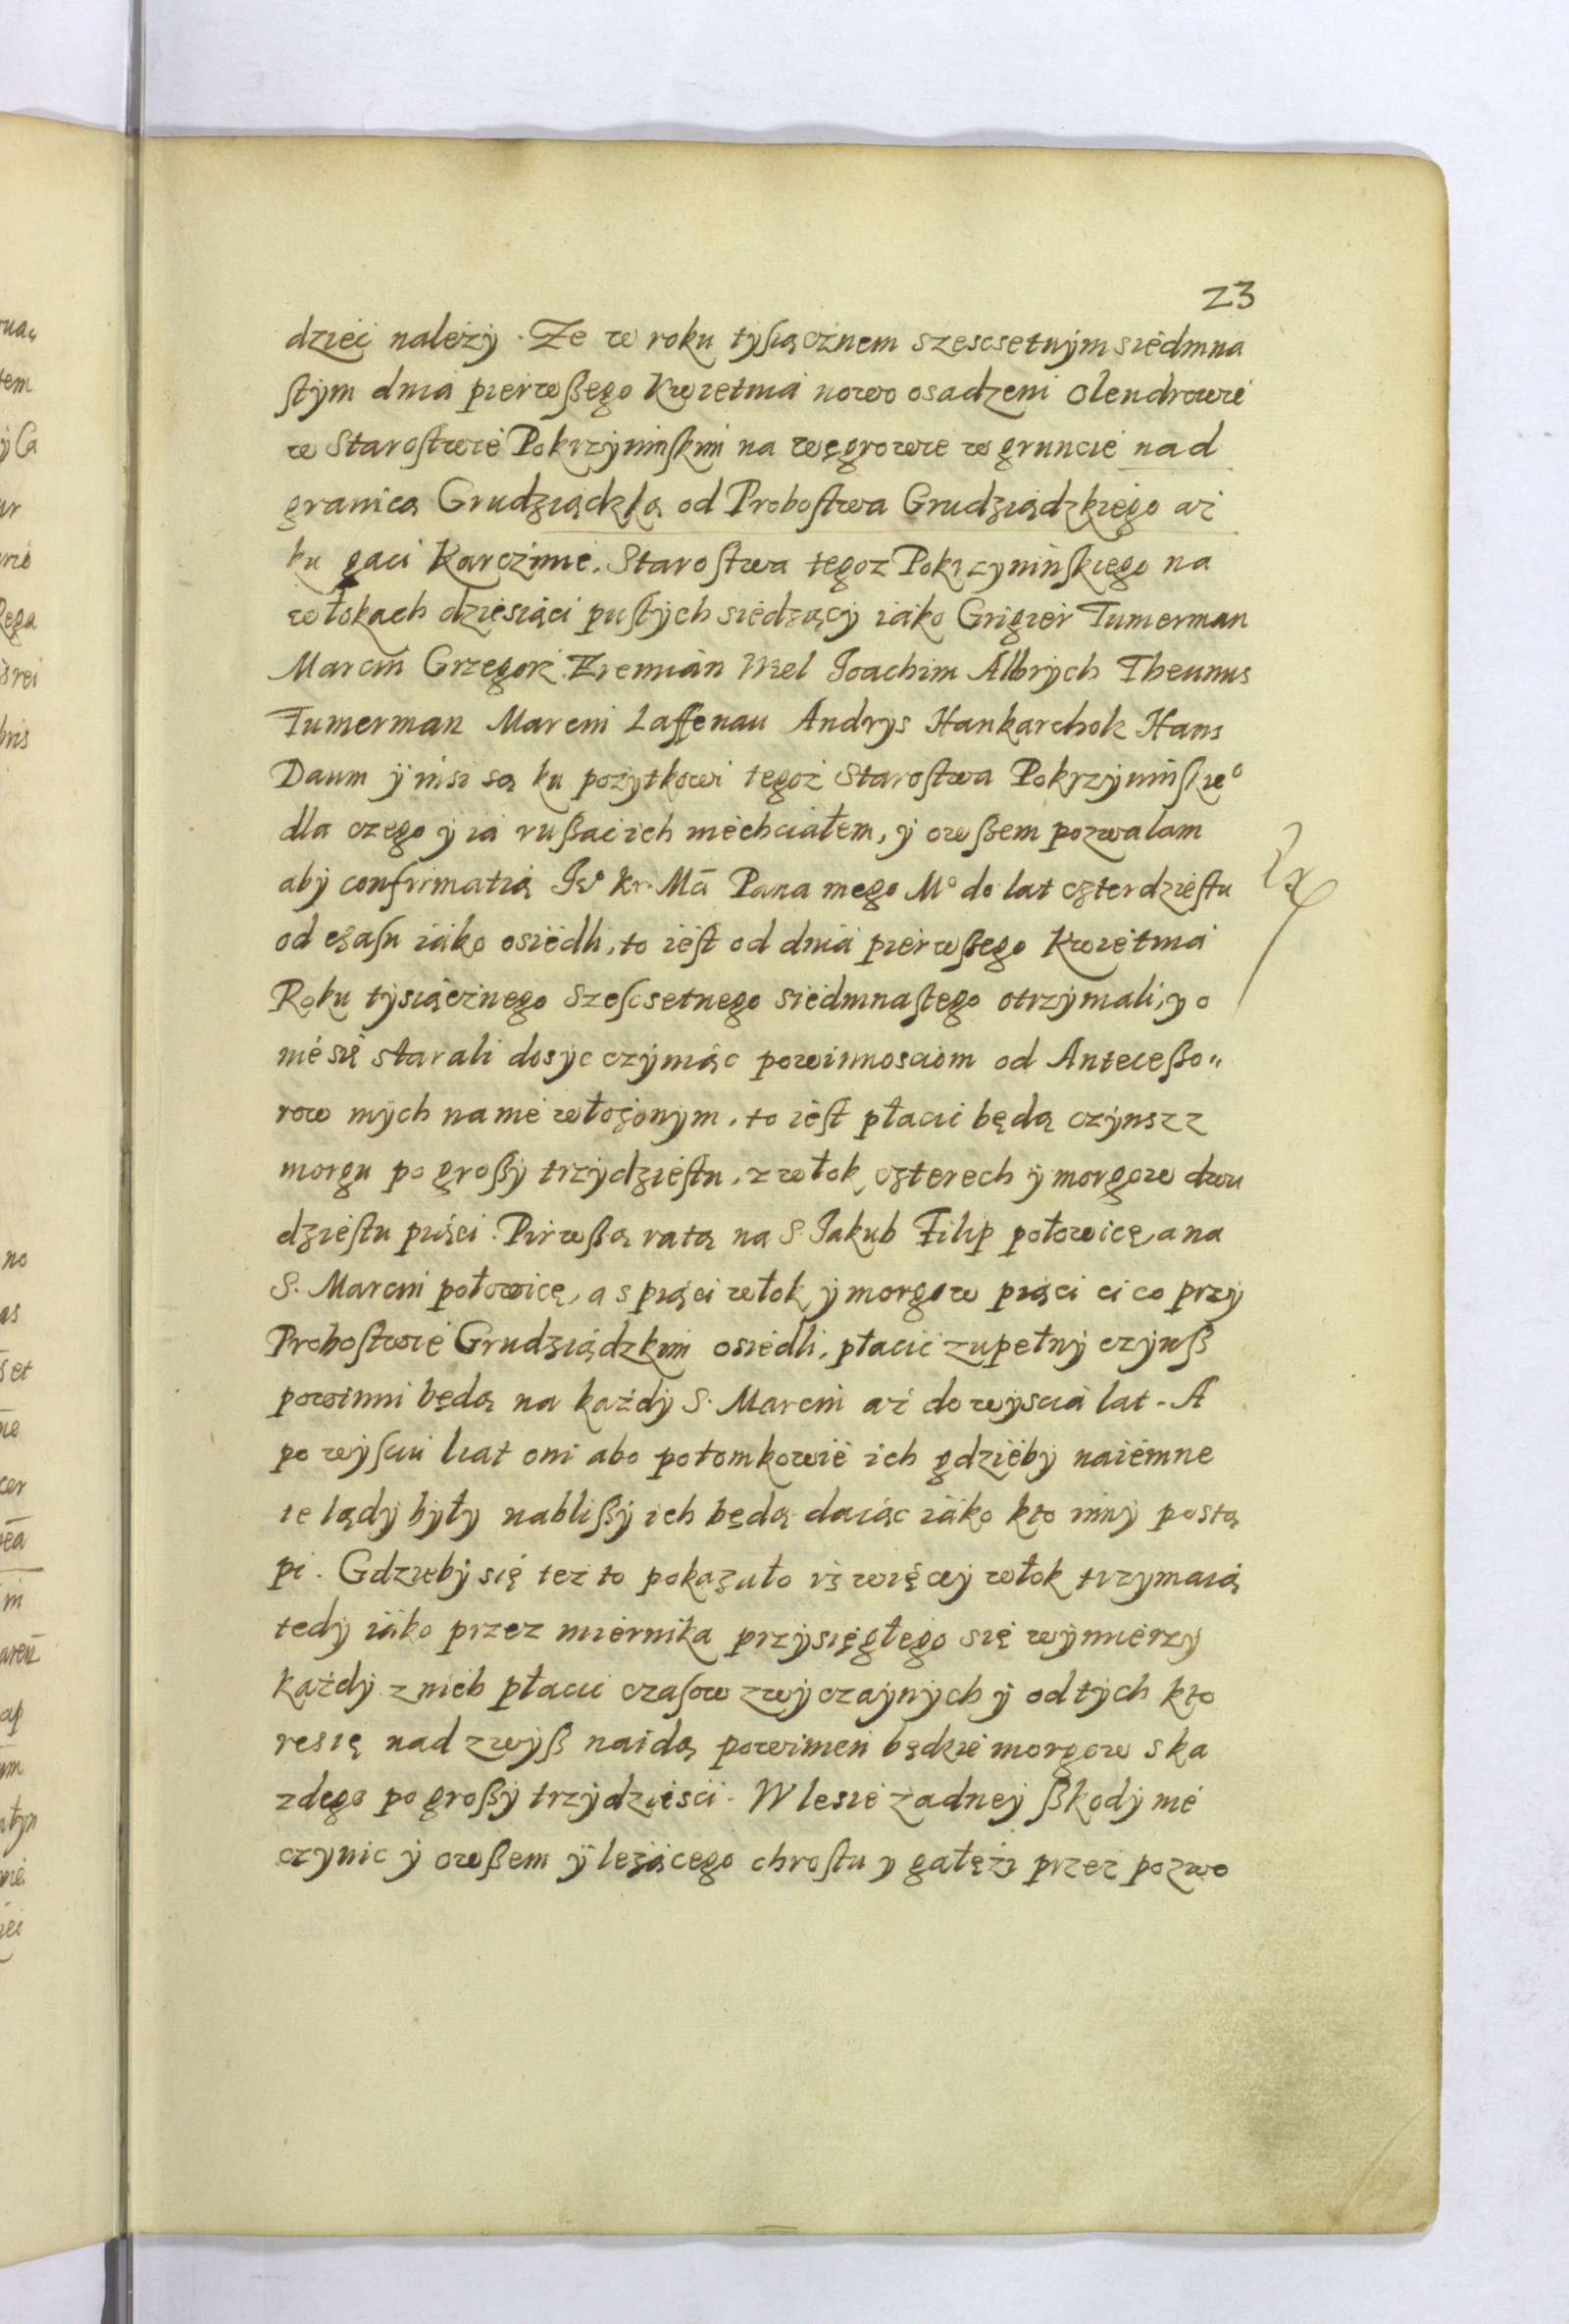 23
dzieć należy. Że w roku tyſiącznem szescsetnym siedmna
ſtym dnia pierwßego Kwietnia nowo osadzeni Olendrowie
w Staroſtwie Pokrzyninſkim na węgrowie w gruncie nad
granicą Grudziądzką od Proboſtwa Grudziądzkiego aż
ku gaci Karczmie. Staroſtwa tegoz Pokrzyninſkiego na
włokach dziesiąci puſtych siedzący iako Grigier Tumerman
Marcin Grzegorz Joachim Albrych Theunus
Tumerman Marcin Laffenau Andrys Hankarchok Hans
Daum y insi są ku pożytkowi tegoż Staroſtwa Pokrzyninſkieº
dla czego y ia rußać ich niechciałem, y owßem pozwalam
aby confirmatią Jº Kr. Mći Pana mego Mº do lat czterdzieſtu
od czaſu iako osiedli, to ieſt od dnia pierwßego Kwietnia
Roku tysiącznego Szeſcsetnego siedmnaſtego otrzymali, y o
nie się starali dosyc czyniąc powinnosciom od Anteceßo„
row mych na nie włożonym, to ieſt płacić będą czynsz z
morgu po groſzy trzydzieſtu, z włok czterech y morgow dwu
dzieſtu piąci. Pirwßą ratą na S. Jakub Filip połowicę, a na
S. Marcin połowicę, a s piąci włok y morgow piąci ci co przy
Proboſtwie Grudziądzkim osiedli, płacić zupełny czynß
powinni będą na każdy S. Marcin aż do wyscia lat. A
po wyſciu liat oni abo potomkowie ich gdzieby naiemne
te lądy były nablißy ich będą daiąc iako kto inny postą
pi. Gdzieby się tez to pokazało iż więcey włok trzymaią
tedy iako przez miernika przysięgłego się wymierzy
każdy z nich płacić czaſow zwyczaynych y od tych kto
re się nad zwyß naidą powinien będzie morgow s ka
zdego po großy trzydzieści. W lesie zadney ßkody nie
czynic y owßem y leżącego chroſtu y gałęzi przez pozwo